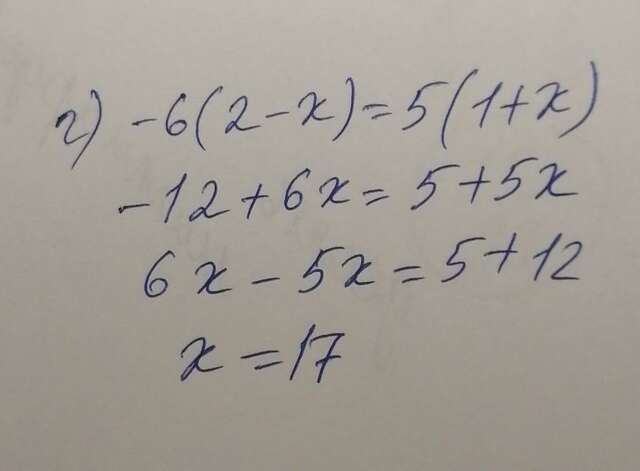 г) -6(2-x)=5(1+x)
-12+6x=5+5x
6x-5x=5+12
x=17